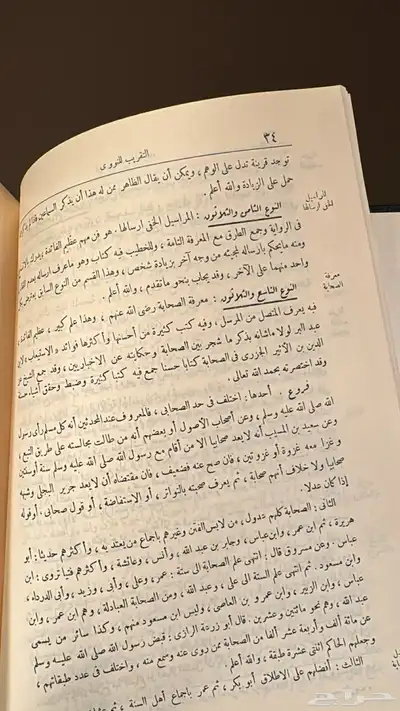 ٣٤
التقريب للنووى
توجد قرينة تدل على الوهم ، ويمكن أن يقال الظاهر ممن له هذا أن يذكر السماعين فاذا
حمل على الزيادة والله أعلم .
المراسيل
الخفى ارسالها
النوع الثامن والثلاثون : المراسيل الخفى ارسالها . هو فن مهم عظيم الفائدة
فى الرواية وجمع الطرق مع المعرفة التامة ، وللخطيب فيه كتاب وهو ماعرف ارساله
ومنه مايحكم بارساله لمجيئه من وجه آخر بزيادة شخص ، وهذا القسم مع النوع السابق
واحد منهما على الآخر ، وقد يجاب بنحو ماتقدم ، والله أعلم .
معرفة
الصحابة
النوع التاسع والثلاثون : معرفة الصحابة رضى الله عنهم ، وهذا علم كبير ، عظيم الفائدة
فيه يعرف المتصل من المرسل ، وفيه كتب كثيرة من أحسنها وأكثرها فوائد « الاستيعاب » لابن
عبد البر لولا ماشانه بذكر ما شجر بين الصحابة وحكايته عن الاخباريين ، وقد جمع الشيخ عز
الدين بن الأثير الجزرى فى الصحابة كتابا حسنا جمع فيه كتبا كثيرة وضبط وحقق أشياء حسنة
وقد اختصرته بحمد الله تعالى .
فروع . أحدها : اختلف فى حد الصحابى ، فالمعروف عند المحدثين أنه كل مسلم رأى رسول
الله صلى الله عليه وسلم ، وعن أصحاب الأصول أو بعضهم أنه من طالت مجالسته على طريق التبع ،
وعن سعيد بن المسيب أنه لايعد صحابيا الا من أقام مع رسول الله صلى الله عليه وسلم سنة أوسنتين
وغزا معه غزوة أو غزوتين ، فان صح عنه فضعيف ، فان مقتضاه أن لايعد جرير البجلى وشبهه
صحابيا ولا خلاف أنهم صحابة ، ثم يعرف صحبته بالتواتر ، أو الاستفاضة ، أو قول صحابى ، أو قوله
إذا كان عدلا .
الثانى : الصحابة كلهم عدول ، من لابس الفتن وغيرهم باجماع من يعتد به ، وأكثرهم حديثا : أبو
هريرة ، ثم ابن عمر ، وابن عباس ، وجابر بن عبد الله ، وأنس ، وعائشة ، وأكثرهم فتيا تروى : ابن
عباس . وعن مسروق قال : انتهى علم الصحابة الى ستة : عمر ، وعلى ، وأبى ، وزيد ، وأبى الدرداء ،
وابن مسعود . ثم انتهى علم الستة الى على ، وعبد الله ، ومن الصحابة العبادلة ، وهم ابن عمر ، وابن
عباس ، وابن الزبير ، وابن عمرو بن العاصى ، وليس ابن مسعود منهم ، وكذا سائر من يسمى
عبد الله ، وهم نحو مائتين وعشرين . قال أبو زرعة الرازى : قبض رسول الله صلى الله عليه وسلم
عن مائة ألف وأربعة عشر ألفا من الصحابة ممن روى عنه وسمع منه ، واختلف فى عدد طبقاتهم ،
وجعلهم الحاكم اثنتى عشرة طبقة ، والله أعلم .
الثالث : أفضلهم على الاطلاق أبو بكر ، ثم عمر باجماع أهل السنة ، ثم
حراج